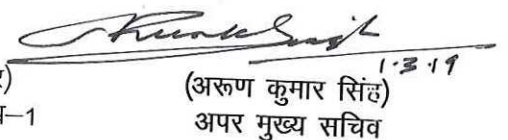 1.3.19
(अरूण कुमार सिंह)
अपर मुख्य सचिव
–1